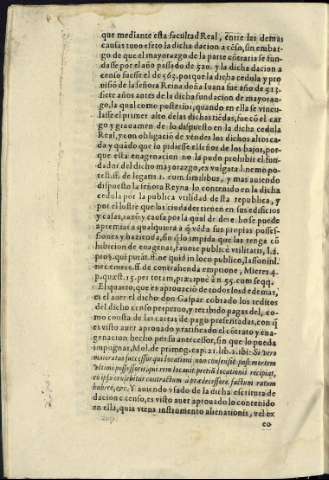 que mediante esta facultad Real, entre las demas
causas touo efeto la dicha dacion a cēso, sin embar-
go de que el mayorazgo de la parte cōtraria se fun-
dasse por el año passado de 520. y la dicha dacion a
censo fuesse el de 563. porque la dicha cedula y pro
uisiō de la señora Reina doña Iuana fue año de 513.
siete años antes de la dicha fundacion de mayoraz-
go, la qual como posterior, quando en ella se vincu-
lasse el primer alto de las dichas tiēdas, fue cō el car
go y grauamen de lo dispuesto en la dicha cedula
Real, y con obligaciō de vender los dichos altos ca-
da y quādo que lo pidiesse el señor de los bajos, por-
que esta enagenacion no la pudo prohibir el fun-
dador del dicho mayorazgo, ex vulgata l. nemo po-
test, ff. de legatis 1. cum similibus, y mas auiendo
dispuesto la señora Reyna lo contenido en la dicha
cedula por la publica vtilidad desta republica, y
por el lustre que las ciudades tienen en sus edificios
y casas, razō y causa por la qual de derecho se puede
apremiar a qualquiera a q̄ vēda sus propias posses-
siones y hazienda, sin q̄ lo impida que las tenga cō
hibicion de enagenar, fauore publicæ vtilitatis, l. si
                    ff. ne quid in loco publico,
nec emere, ff. de contrahenda emptione, Mieres 4.
p. quæst. 15. per totam,            n. 55. cum seqq.
El quarto, que es aprouaciō de todos los de demas,
es el auer el dicho don Gaspar cobrado los reditos
del dicho censo perpetuo, y recibido pagas del, co-
mo consta de las cartas de pago presentadas, con q̄
es visto auer aprouado y ratificado el cōtrato y ena-
genacion hecho por su antecessor, sin que lo pueda
impugnar, Mol. de primog. cap. 21. lib. 1. ibi: Si vero
maioratus successor qui locationi non consensit post mortem
vltimi possessoris, qui rem locauit pretiū locationis recipiat,
ex ipso censebitur contractum a prædecessore factum ratum
habere, etc. Y auiendo vsado de la dicha escritura de
dacion a censo, es visto auer aprouado lo contenido
en ella, quia vtens instrumento alienationis, vel ex
co